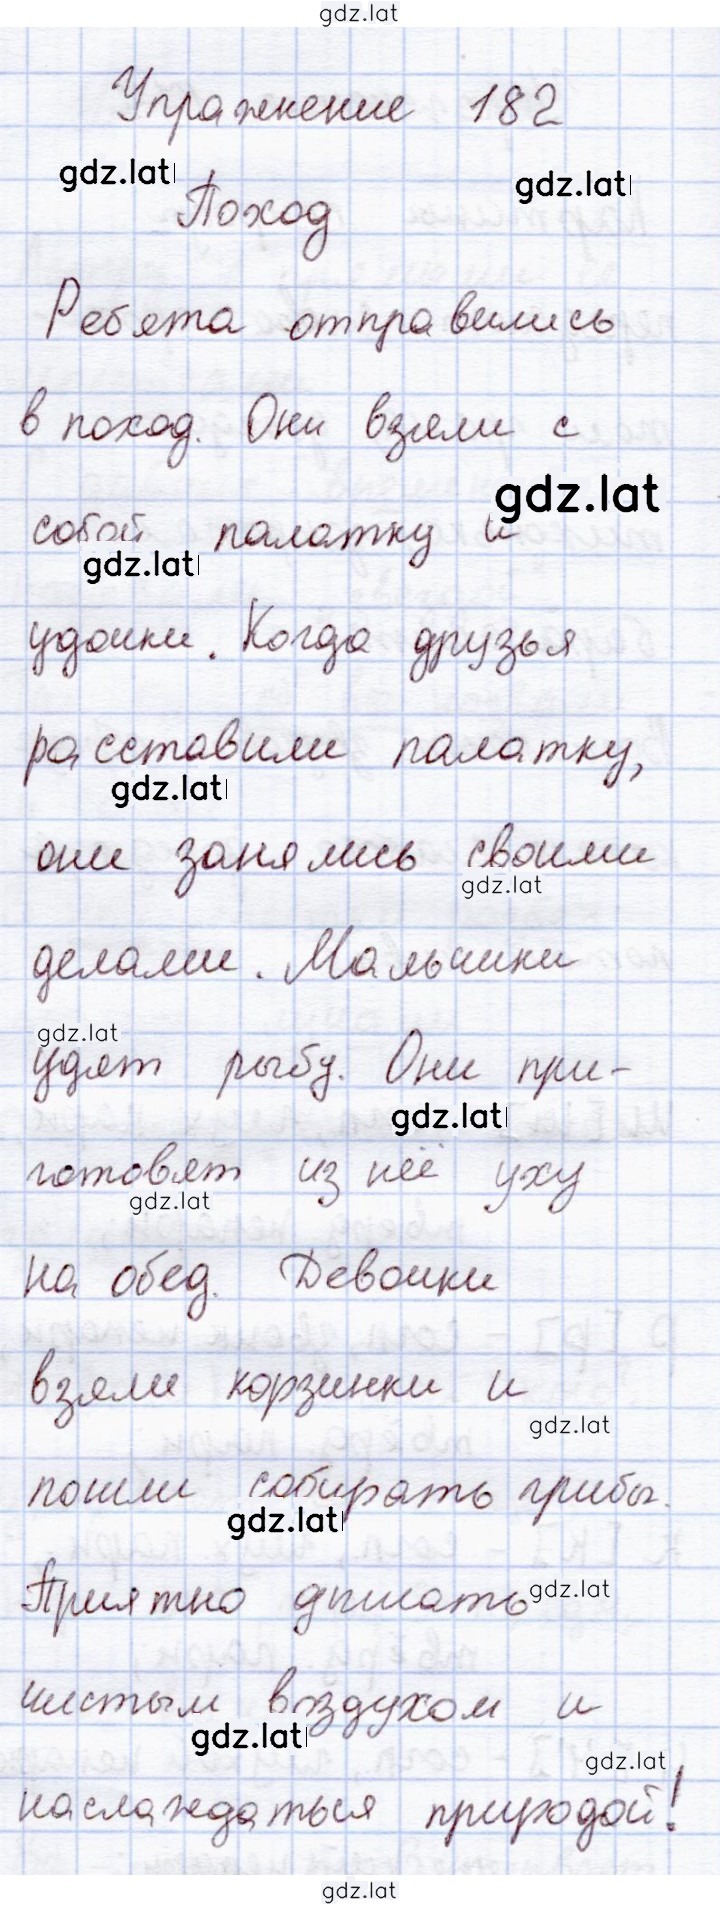 gdz.lat
Упражнение 182
gdz.lat
gdz.lat
Поход
Ребята отправились
в поход. Они взяли с
gdz.lat
собой палатку и
gdz.lat
удочки. Когда друзья
расставили палатку,
gdz.lat
они занялись своими
gdz.lat
делами. Мальчики
gdz.lat
удят рыбу. Они при-
gdz.lat
готовят из неё уху
gdz.lat
на обед. Девочки
взяли корзинки и
gdz.lat
пошли собирать грибы.
gdz.lat
Приятно дышать
gdz.lat
чистым воздухом и
gdz.lat
gdz.lat
наслаждаться природой!
gdz.lat